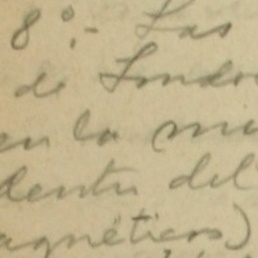 8º.- Las
de Londo
en la mu
dentro del
agnéticos)